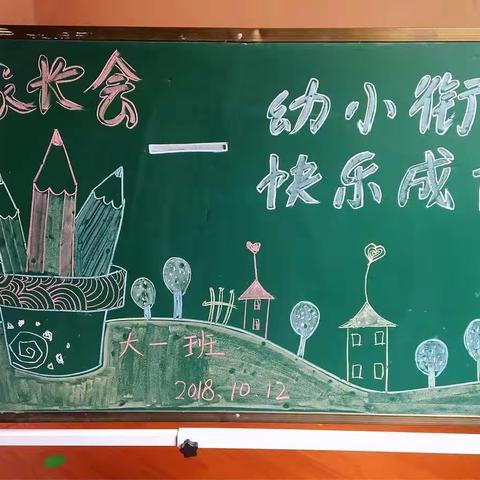 家长会
幼小衔
快乐成
大一班
2018.10.12